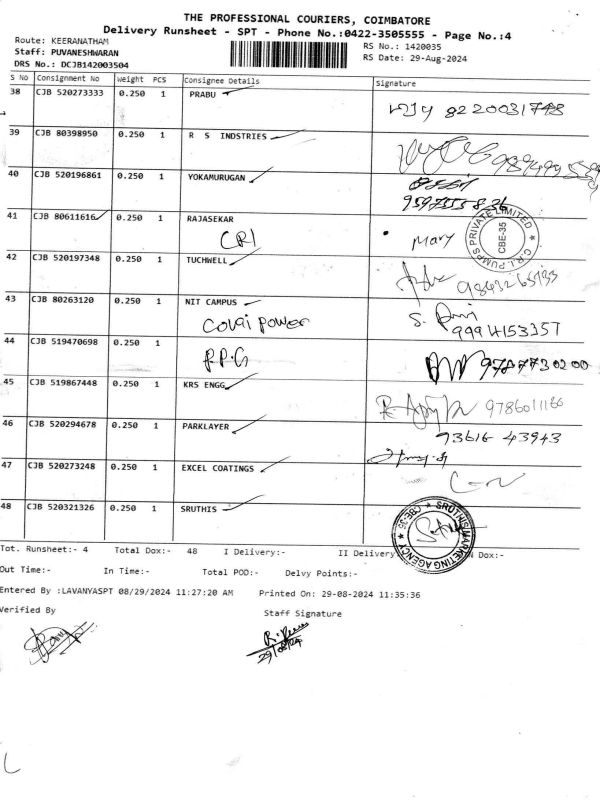 THE PROFESSIONAL COURIERS, COIMBATORE
Delivery Runsheet - SPT - Phone No.:0422-3505555 - Page No.:4
Route: KEERANATHAM
RS No.: 1420035
Staff: PUVANESHWARAN
RS Date: 29-Aug-2024
DRS No.: DCJB142003504
S No Consignment No Weight PCS Consignee Details Signature
38 CJB 520273333 0.250 1 PRABU
8220031748
39 CJB 80398950 0.250 1 R S INDSTRIES
40 CJB 520196861 0.250 1 YOKAMURUGAN
41 CJB 80611616 0.250 1 RAJASEKAR
CRI Mary
C.R.I. PUMPS PRIVATE LIMITED
CBE-35
42 CJB 520197348 0.250 1 TUCHWELL
9843265133
43 CJB 80263120 0.250 1 NIT CAMPUS
Covai power 9994153357
44 CJB 519470698 0.250 1
P.P.G 9787730200
45 CJB 519867448 0.250 1 KRS ENGG
9786011166
46 CJB 520294678 0.250 1 PARKLAYER
93616 43943
47 CJB 520273248 0.250 1 EXCEL COATINGS
48 CJB 520321326 0.250 1 SRUTHIS
SRUTHIS MARKETING AGENCY
CBE-35
Tot. Runsheet:- 4 Total Dox:- 48 I Delivery:- II Delivery Dox:-
Out Time:- In Time:- Total POD:- Delvy Points:-
Entered By :LAVANYASPT 08/29/2024 11:27:20 AM Printed On: 29-08-2024 11:35:36
Verified By Staff Signature
29/08/24